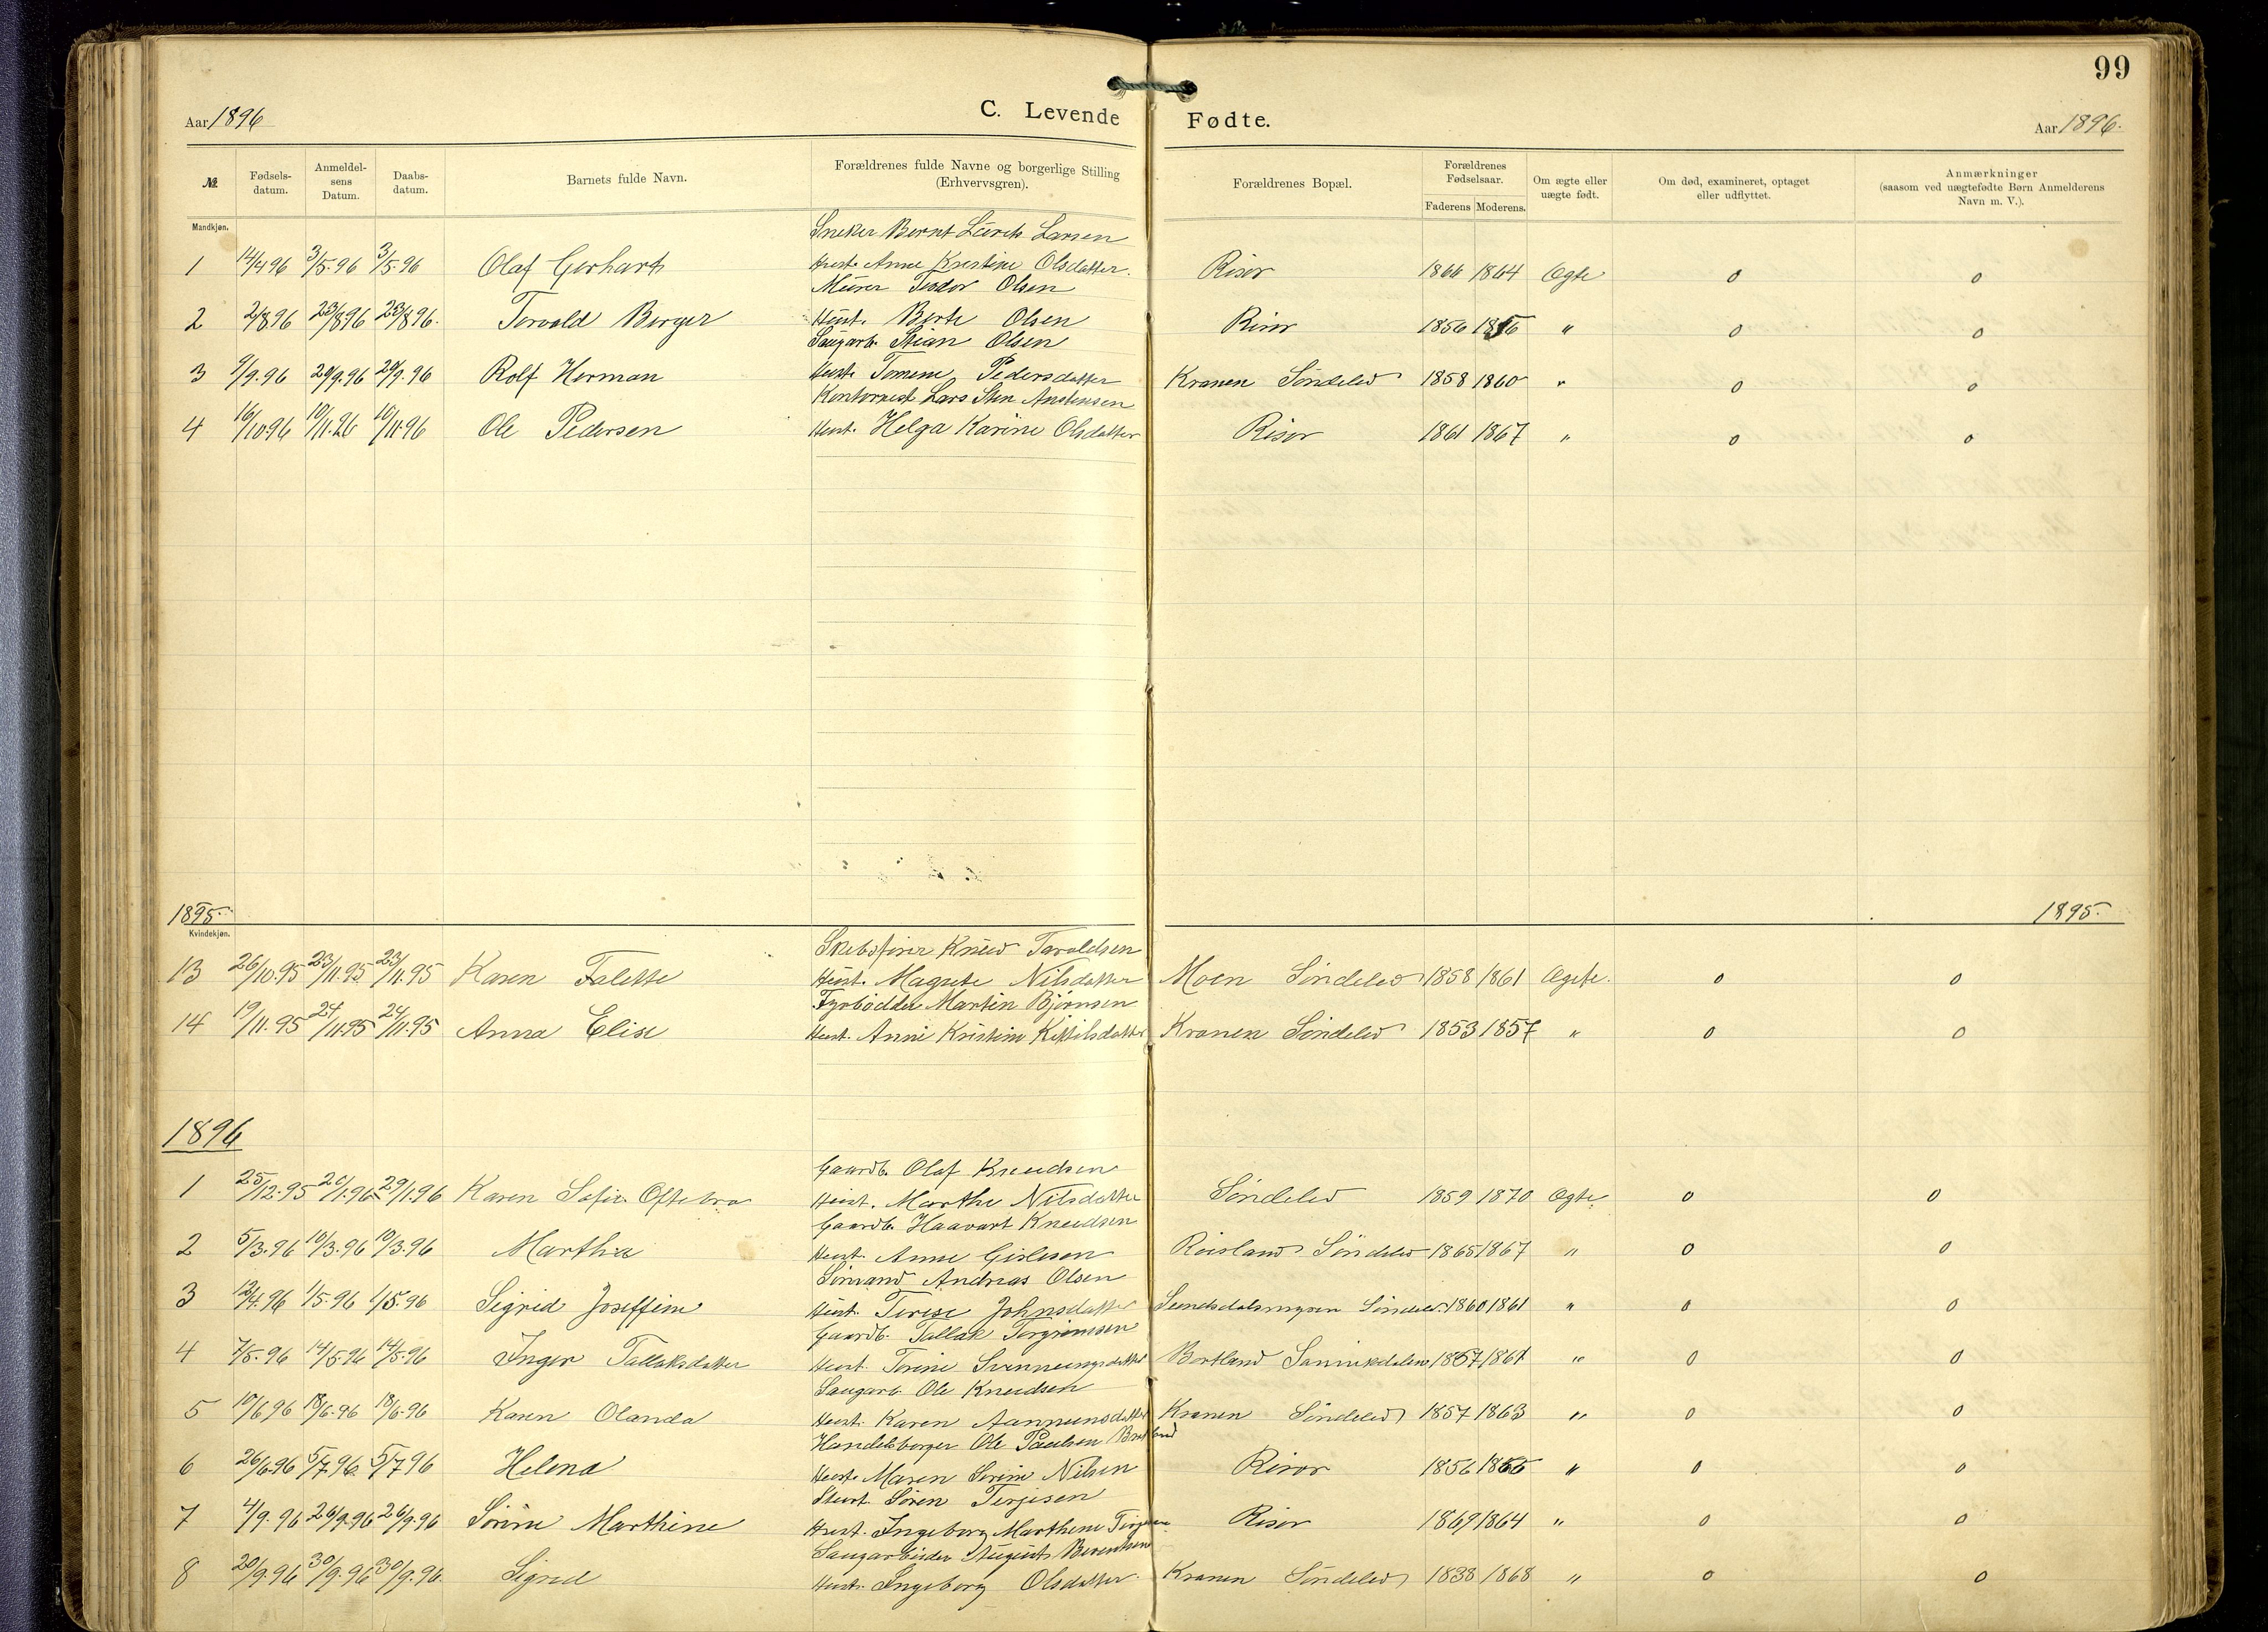 99
C. Levende Fødte.
Aar 1896 Aar 1896.
№ Fødsels-datum. Anmeldel-sens Datum. Daabs-datum. Barnets fulde Navn. Forældrenes fulde Navne og borgerlige Stilling (Erhvervsgren). Forældrenes Bopæl. Forældrenes Fødselsaar. Faderens Moderens. Om ægte eller uægte født. Om død, examineret, optaget eller udflyttet. Anmærkninger (saasom ved uægtefødte Børn Anmelderens Navn m. V.).
Mandkjøn.
Sneker Bernt Larsen
1 14/4 96 3/5. 96 3/5. 96 Olaf Gerhart Hust. Anne Kristine Olsdatter. Risør 1866 1864 Ægte 0 0
Murer Teodor Olsen
2 2/8 96 23/8 96 23/8 96. Torvald Berger Hust. Berte Olsen Risør 1856 " 0 0
Saugarb. Stian Olsen
3 9/9. 96 29/9. 96 29/9. 96 Rolf Herman Hust. Tomene Pedersdatter Kranen Søndelev 1858 1860 " 0 0
Lars Sten Anstensen
4 16/10 96 10/11. 96 Ole Pedersen Hust. Helga Karine Olsdatter Risør 1861 1867 " 0 0
1895. 1895.
Kvindekjøn.
Skibsfører Knud Taraldsen
13 26/10. 95 23/11. 95 23/11. 95 Karen Falette Hust. Magrete Nilsdatter Moen Søndelev 1858 1861 Ægte. 0 0
Fyrbødder Martin Bjørnsen
14 19/11. 95 24/11 95 24/11. 95 Anna Elise Hust. Anne Kristine Kittilsdatter Kranen Søndelev 1853 1857 " 0 0
1896
Gaardb. Olaf Knudsen
1 25/12. 95 29/1. 96 Karen Sofie Oftebro Hust. Marthe Nilsdatter Søndelev 1859 1870 Ægte 0 0
Gaardb. Haavart Knudsen
2 5/3. 96 10/3. 96 10/3. 96 Martha Hust. Anne Gislesen Røisland Søndelev 1865 1867 " 0 0
Sømand Andreas Olsen
3 12/4. 96 1/5. 96 1/5. 96 Sigrid Joseffine Hust. Terese Johnsdatter Sundsdalsmyren Søndelev 1860 1861 " 0 0
Gaardb. Tallak Torgrimsen
4 7/5. 96 14/5. 96 14/5. 96 Inger Tallaksdatter Hust. Torine Svennungsdatter Bortland Sannikedalen 1857 1861 " 0 0
Saugarb. Ole Knudsen
5 10/6 96 18/6. 96 18/6. 96 Karen Olanda Hust. Karen Aanunsdatter Kranen Søndelev 1857 1863 " 0 0
Handelsborger Ole Paulsen Bratland
6 26/6 96 5/7 96. 5/7 96 Helena Hust. Maren Serine Nilsen Risør 1856 " 0 0
Stuert. Søren Terjesen
7 4/9. 96 26/9. 96 26/9. 96 Sørine Marthine Hust. Ingeborg Marthene Terjesen Risør 1869 1864 " 0 0
Saugarbeider August Berentsen
8 20/9. 96 30/9. 96 30/9. 96. Sigrid Hust. Ingeborg Olsdatter. Kranen Søndelev 1838 1868 " 0 0